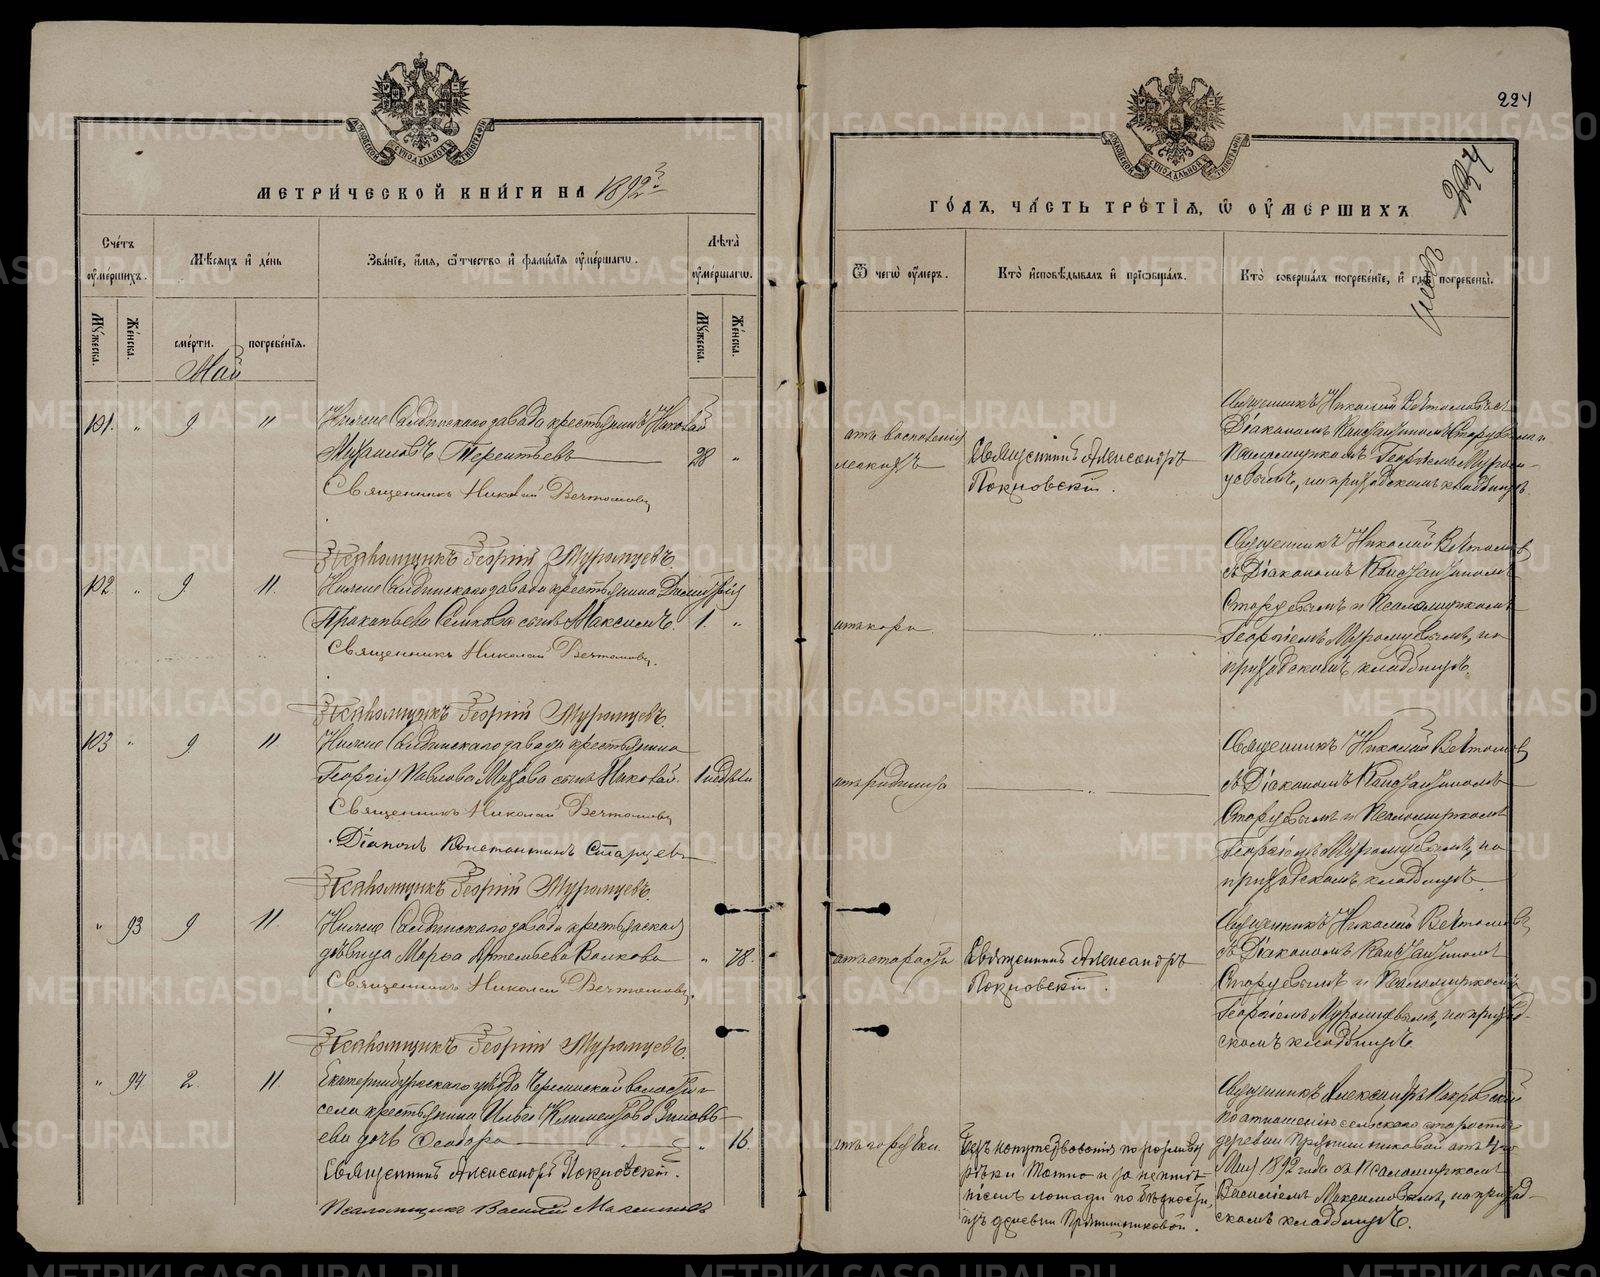 МЕТРИ́ЧЕСКОЙ КНИ́ГИ НА 1892й
Сче́тъ ᲂу҆ме́ршихъ.
Мѣ́сяцъ и҆ де́нь
Зва́нїе, и҆́мѧ, ѻ҆́тчество и҆ фами́лїѧ ᲂу҆ме́ршагѡ.
Лѣ́та ᲂу҆ме́ршагѡ.
Му́жеска.
Же́нска.
сме́рти.
погребе́нїѧ.
Му́жеска.
Же́нска.
Май
101. " 9 11
Нижне Салдинскаго завода крестьянинъ Николай
Михаиловъ Терентьевъ 28 "
Священникъ Николай Вечтомовъ
Псаломщикъ Георгій Муромцевъ.
102 " 9 11.
Нижне Салдинскаго завода крестьянина Димитрія
Прокопьева сынъ Максимъ. 1. "
Священникъ Николай Вечтомовъ.
Псаломщикъ Георгій Муромцевъ.
103 " 9 11
Нижне Салдинскаго завода крестьянина
Георгія Павлова сынъ Николай. 1 недѣли
Священникъ Николай Вечтомовъ
Діаконъ Константинъ Старцевъ
Псаломщикъ Георгій Муромцевъ.
" 93 9 11.
Нижне Салдинскаго завода крестьянская
дѣвица Марѳа Артемьева Волкова " 78.
Священникъ Николай Вечтомовъ.
Псаломщикъ Георгій Муромцевъ.
" 94 2. 11.
Екатеринбургскаго уѣзда волости и
села крестьянина Ильи Климентова Зиновь-
ева дочь Ѳеодора " 16.
Священникъ Александръ Покровскій.
Псаломщикъ Василій Максимовъ
224
ГО́ДЪ, ЧА́СТЬ ТРЕ́ТЇѦ, Ѽ ОУ҆МЕ́РШИХЪ
Ѿ чегѡ̀ ᲂу҆́меръ.
Кто̀ и҆сповѣ́дывалъ и҆ прїѡбща́лъ.
Кто̀ соверша́лъ погребе́нїе, и҆ гдѣ̀ погребены̀.
отъ воспаленія
легкихъ
Священникъ Александръ
Покровскій.
Священникъ Николай Вечтомовъ съ
Діакономъ Константиномъ Старцевымъ и
Псаломщикомъ Георгіемъ Муром-
цевымъ, на приходскомъ кладбищѣ.
отъ кори
Священникъ Николай Вечтомовъ
съ Діакономъ Константиномъ
Старцевымъ и Псаломщикомъ
Георгіемъ Муромцевымъ, на
приходскомъ кладбищѣ.
отъ родимца
Священникъ Николай Вечтомовъ
съ Діакономъ Константиномъ
Старцевымъ и Псаломщикомъ
Георгіемъ Муромцевымъ, на
приходскомъ кладбищѣ.
отъ старости
Священникъ Александръ
Покровскій.
Священникъ Николай Вечтомовъ
съ Діакономъ Константиномъ
Старцевымъ и Псаломщикомъ
Георгіемъ Муромцевымъ, на приход-
скомъ кладбищѣ.
отъ горячки.
Безъ напутствованія по разливу
рѣки и за неимѣ-
ніемъ лошади по бѣдности,
изъ деревни
Священникъ Александръ Покровскій
по отношенію сельскаго старосты
деревни отъ 4го
Мая 1892 года съ Псаломщикомъ
Василіемъ Максимовымъ, на приход-
скомъ кладбищѣ.
METRIKI.GASO-URAL.RU